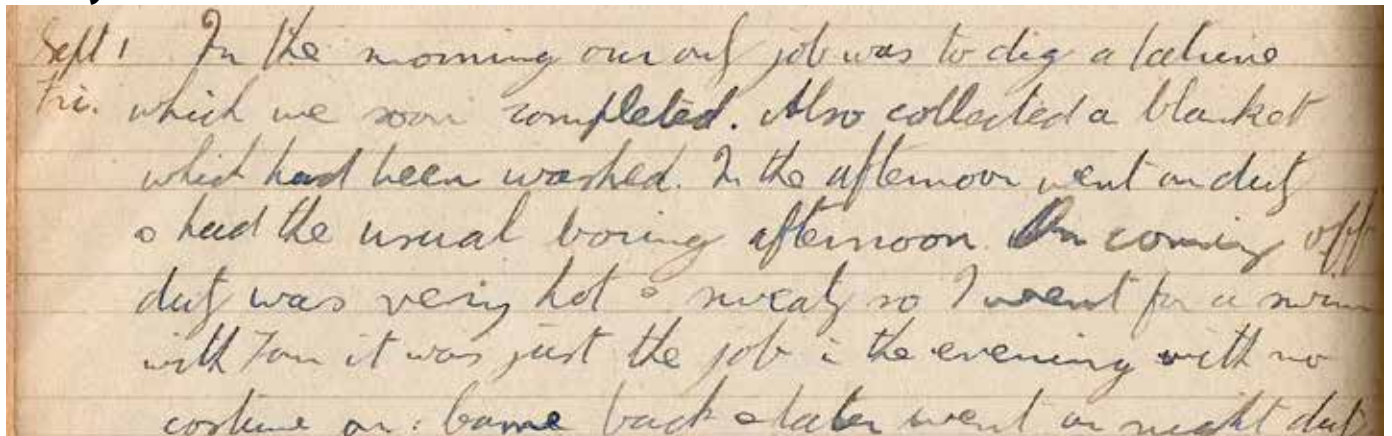 Sept 1 In the morning our only job was to dig a latrine
Fri. which we soon completed. Also collected a blanket
which had been washed. In the afternoon went on duty
& had the usual boring afternoon. On coming off
duty was very hot & sweaty so I went for a swim
with Tom it was just the job in the evening with no
costume on. Came back & later went on night duty